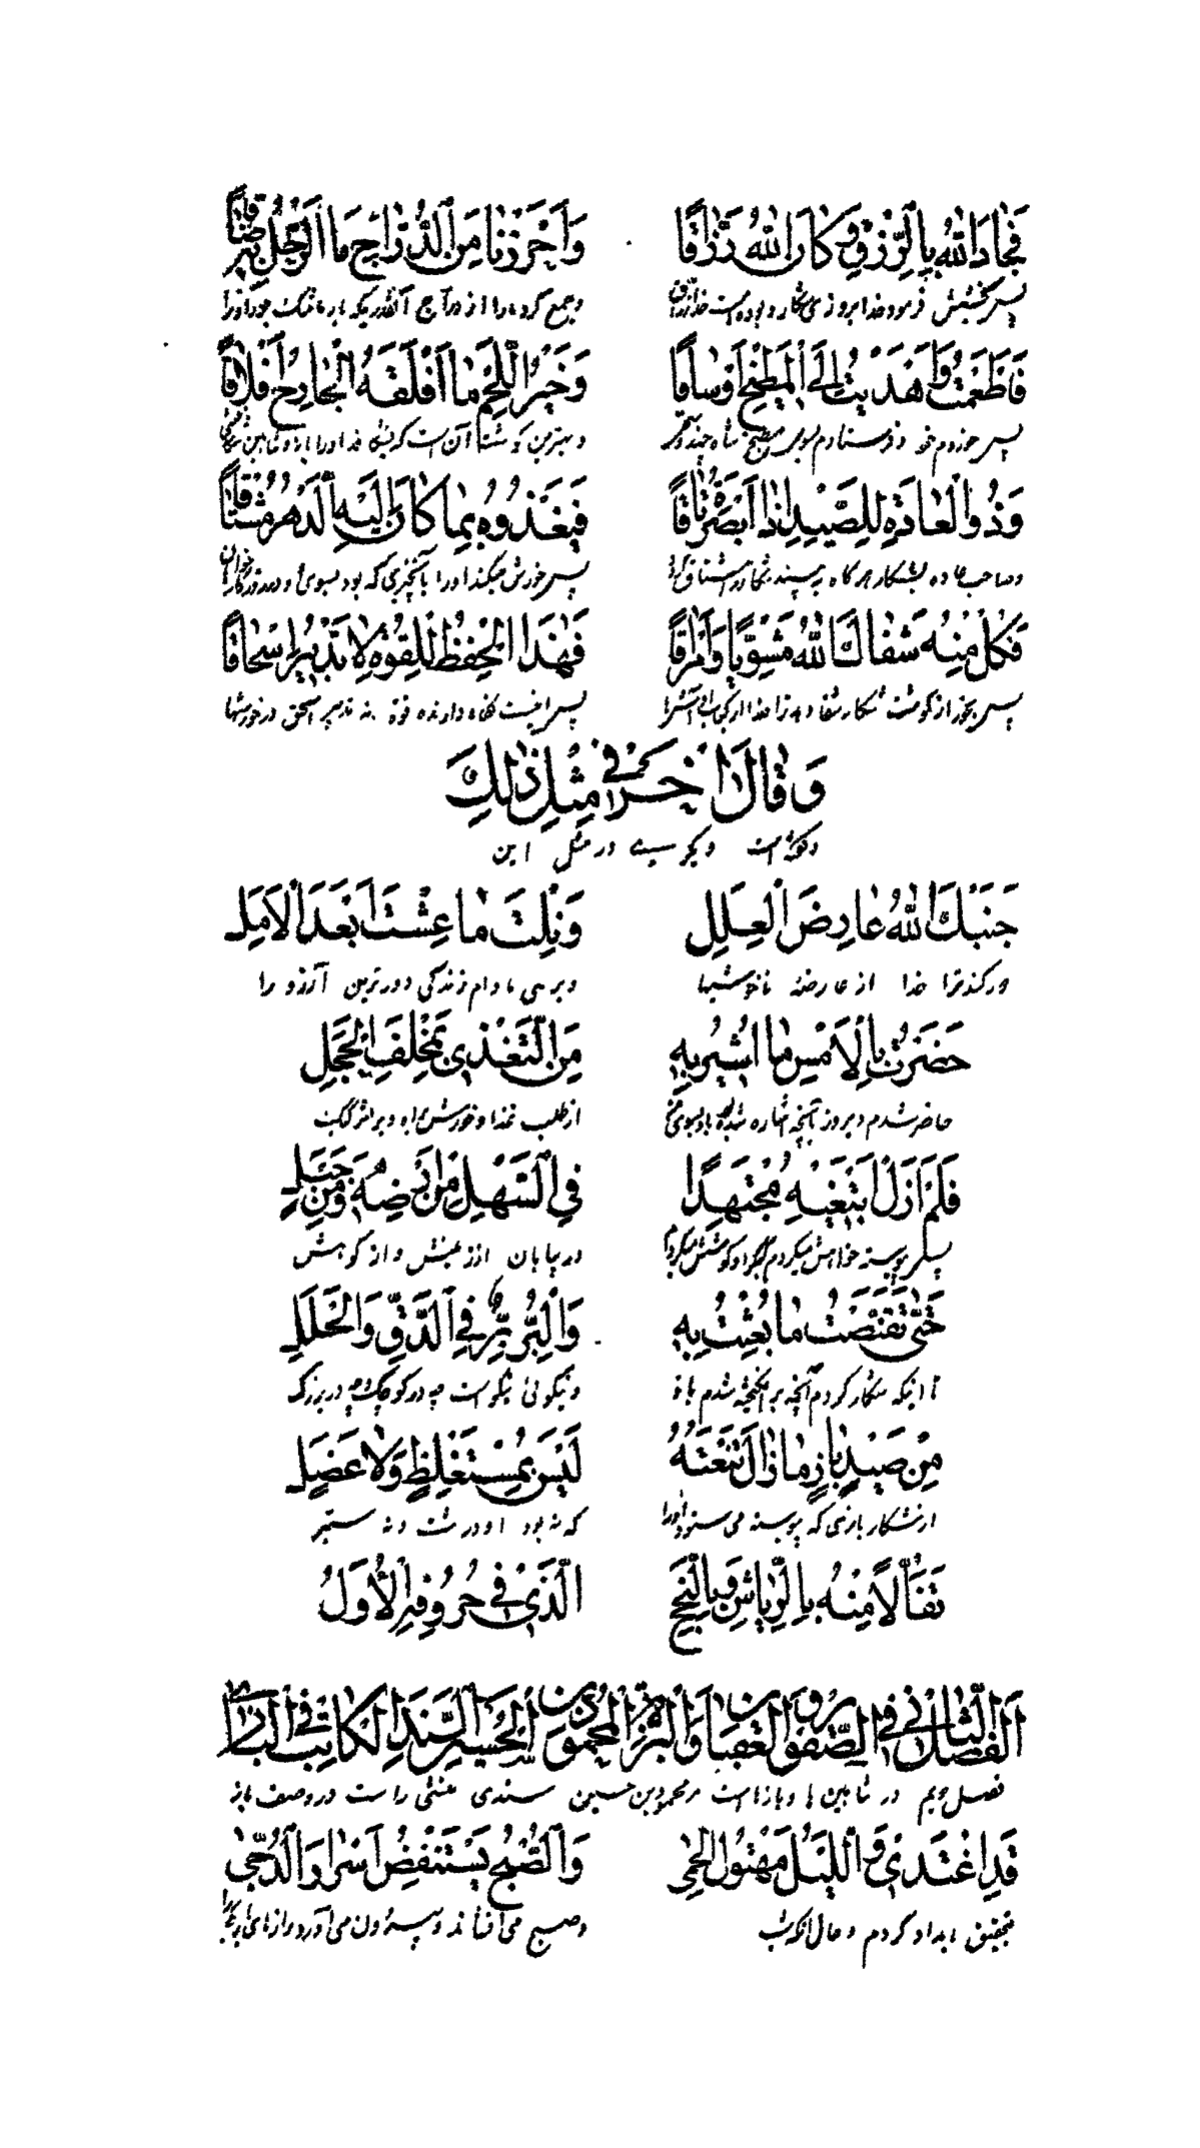 فَجَادَ اللهُ بِالرِّزْقِ وَكَانَ اللهُ رَزَّاقًا وَأَحْرَزْنَا مِنَ الدُّرَّاجِ مَا الرَّحْلُ بِهِ ضَاقًا
پس بخشش فرمود خدا بروزی شکار و بوده است خدا رزاق و جمع کردیم ما را از دراج آنقدر که بار ما تنگ بود او را
فَأَطْعَمْتُ وَأَهْدَيْتُ إِلَى الْمَطْبَخِ أَوْسَاقًا وَخَيْرُ اللَّحْمِ مَا أَقْلَقَهُ الْجَارِحُ إِقْلَاقًا
پس خوردم خود و فرستادم بسوی مطبخ شاه چند و بهترین گوشتها آن است که
وَذُو الْعَادَةِ لِلصَّيْدِ إِذَا أَبْصَرَهُ تَاقًا فَيَغْذُوهُ بِمَا كَانَ إِلَيْهِ الدَّهْرُ مُشْتَاقًا
و صاحب عاده بشکار هرگاه به بیند شکار را مشتاق پس خورش میکند او را بآنچیزی که بود بسوی او
فَكُلْ مِنْهُ شَفَاكَ اللهُ مَشْوِيًّا وَأَمْرَاقًا فَهٰذَا الْحِفْظُ لِلْقُوَّةِ لَا تَدْبِيرُ إِسْحَاقًا
پس بخور از گوشت شکار شفا دهد ترا خدا از کباب پس اینست نگاه دارنده قوة نه تدبیر اسحق در خورشها
وَقَالَ آخَرُ فِي مِثْلِ ذٰلِكَ
و گفته است دیگر سے در مثل این
جَنَّبَكَ اللهُ عَارِضَ الْعِلَلِ وَنِلْتَ مَا عِشْتَ أَبْعَدَ الْأَمَلِ
دور کند ترا خدا از عارضهٔ ناخوشیها و برسی مادام زندگی دورترین آرزو را
حَضَرْتُ بِالْأَمْسِ مَا أُشِيرَ بِهِ مِنَ التَّغَذِّي بِمِخْلَفِ الْحَجَلِ
حاضر شدم دیروز آنچه اشاره شد از طلب غذا و خورش
فَلَمْ أَزَلْ أَبْتَغِيهِ مُجْتَهِدًا فِي السَّهْلِ مِنْ أَرْضِهِ وَمِنْ جَبَلِ
پس پیوسته خواهش میکردم و کوشش میکردم در بیابان از زمینش و از کوهش
حَتَّى تَقَنَّصْتُ مَا بُعِثْتُ بِهِ وَالْبِرُّ بِرٌّ فِي الدَّقِّ وَالْجَلَلِ
تا اینکه شکار کردم آنچه برانگیخته شدم باو و نیکوئی نیکوست چه در کوچک و چه در بزرگ
مِنْ صَيْدِ بَازٍ مَا زَالَ تَنْعَتُهُ لَيْسَ بِمُسْتَغْلِظٍ وَلَا عَضَلِ
از شکار بازی که پیوسته می ستود او را که نبود او درشت و نه ستبر
تَفَأُّلًا مِنْهُ بِالرِّيَاشِ وَبِالنُّجْحِ الَّذِي فِي حُرُوفِهِ الْأُوَلُ
اَلْفَصْلُ الثَّانِي فِي الصُّقُورِ وَالْعِقْبَانِ وَالْبُزَاةِ لِمَحْمُودِ بْنِ الْحُسَيْنِ السِّنْدِيِّ الْكَاتِبِ فِي الْبَازِي
فصل دویم در شاهین ها و بازها است مر محمود بن حسین سندی منشی راست در وصف باز
قَدْ أَغْتَدِي وَاللَّيْلُ مَهْتُولُ الْحِمٰى وَالصُّبْحُ يَسْتَنْفِضُ أَسْرَارَ الدُّجٰى
بتحقیق بامداد کردم و حال آنکه شب و صبح می افشاند و بیرون می آورد رازهای